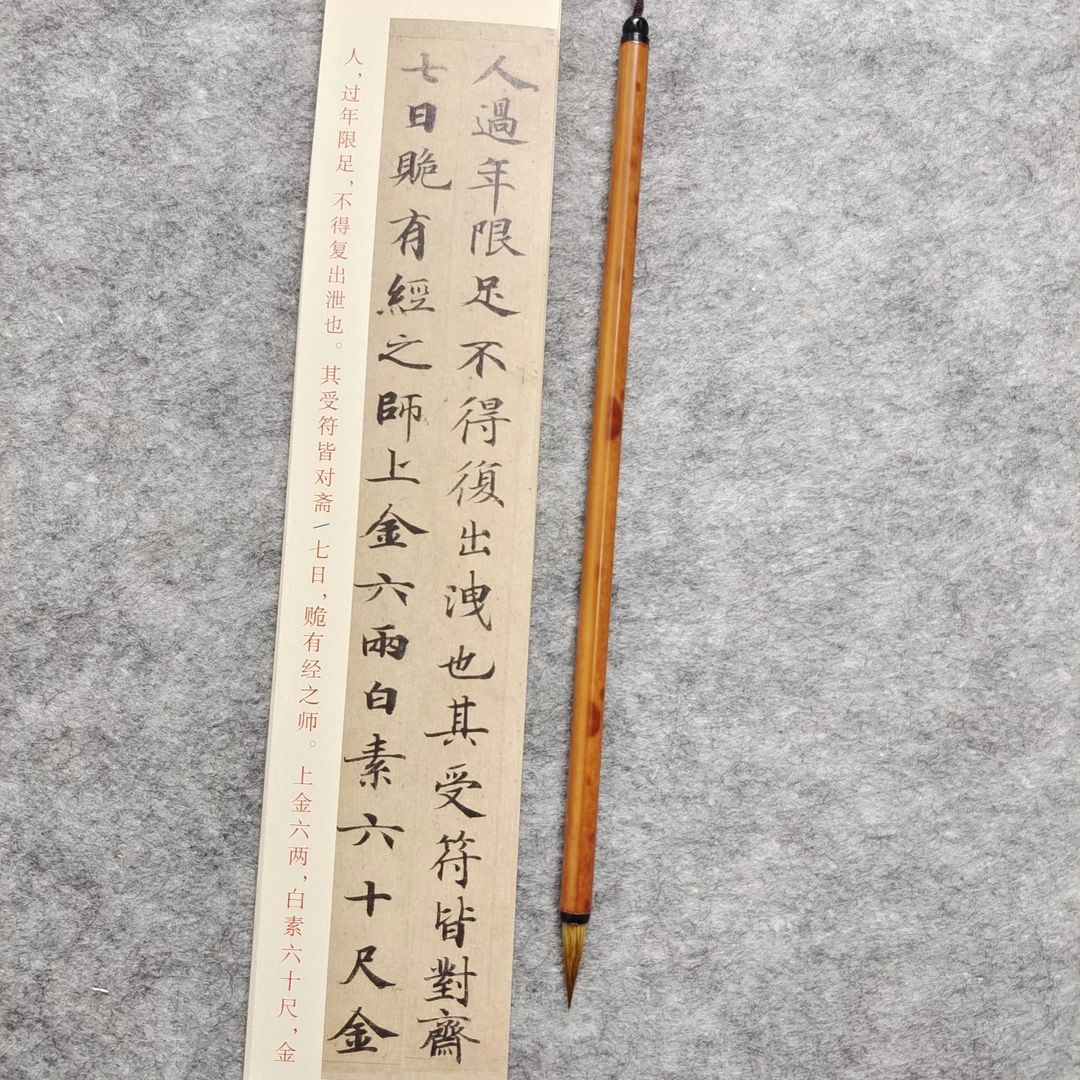 人過年限足不得復出洩也其受符皆對齋
七日貹有經之師上金六兩白素六十尺金
人，过年限足，不得复出泄也。其受符皆对斋／七日，赒有经之师。上金六两，白素六十尺，金